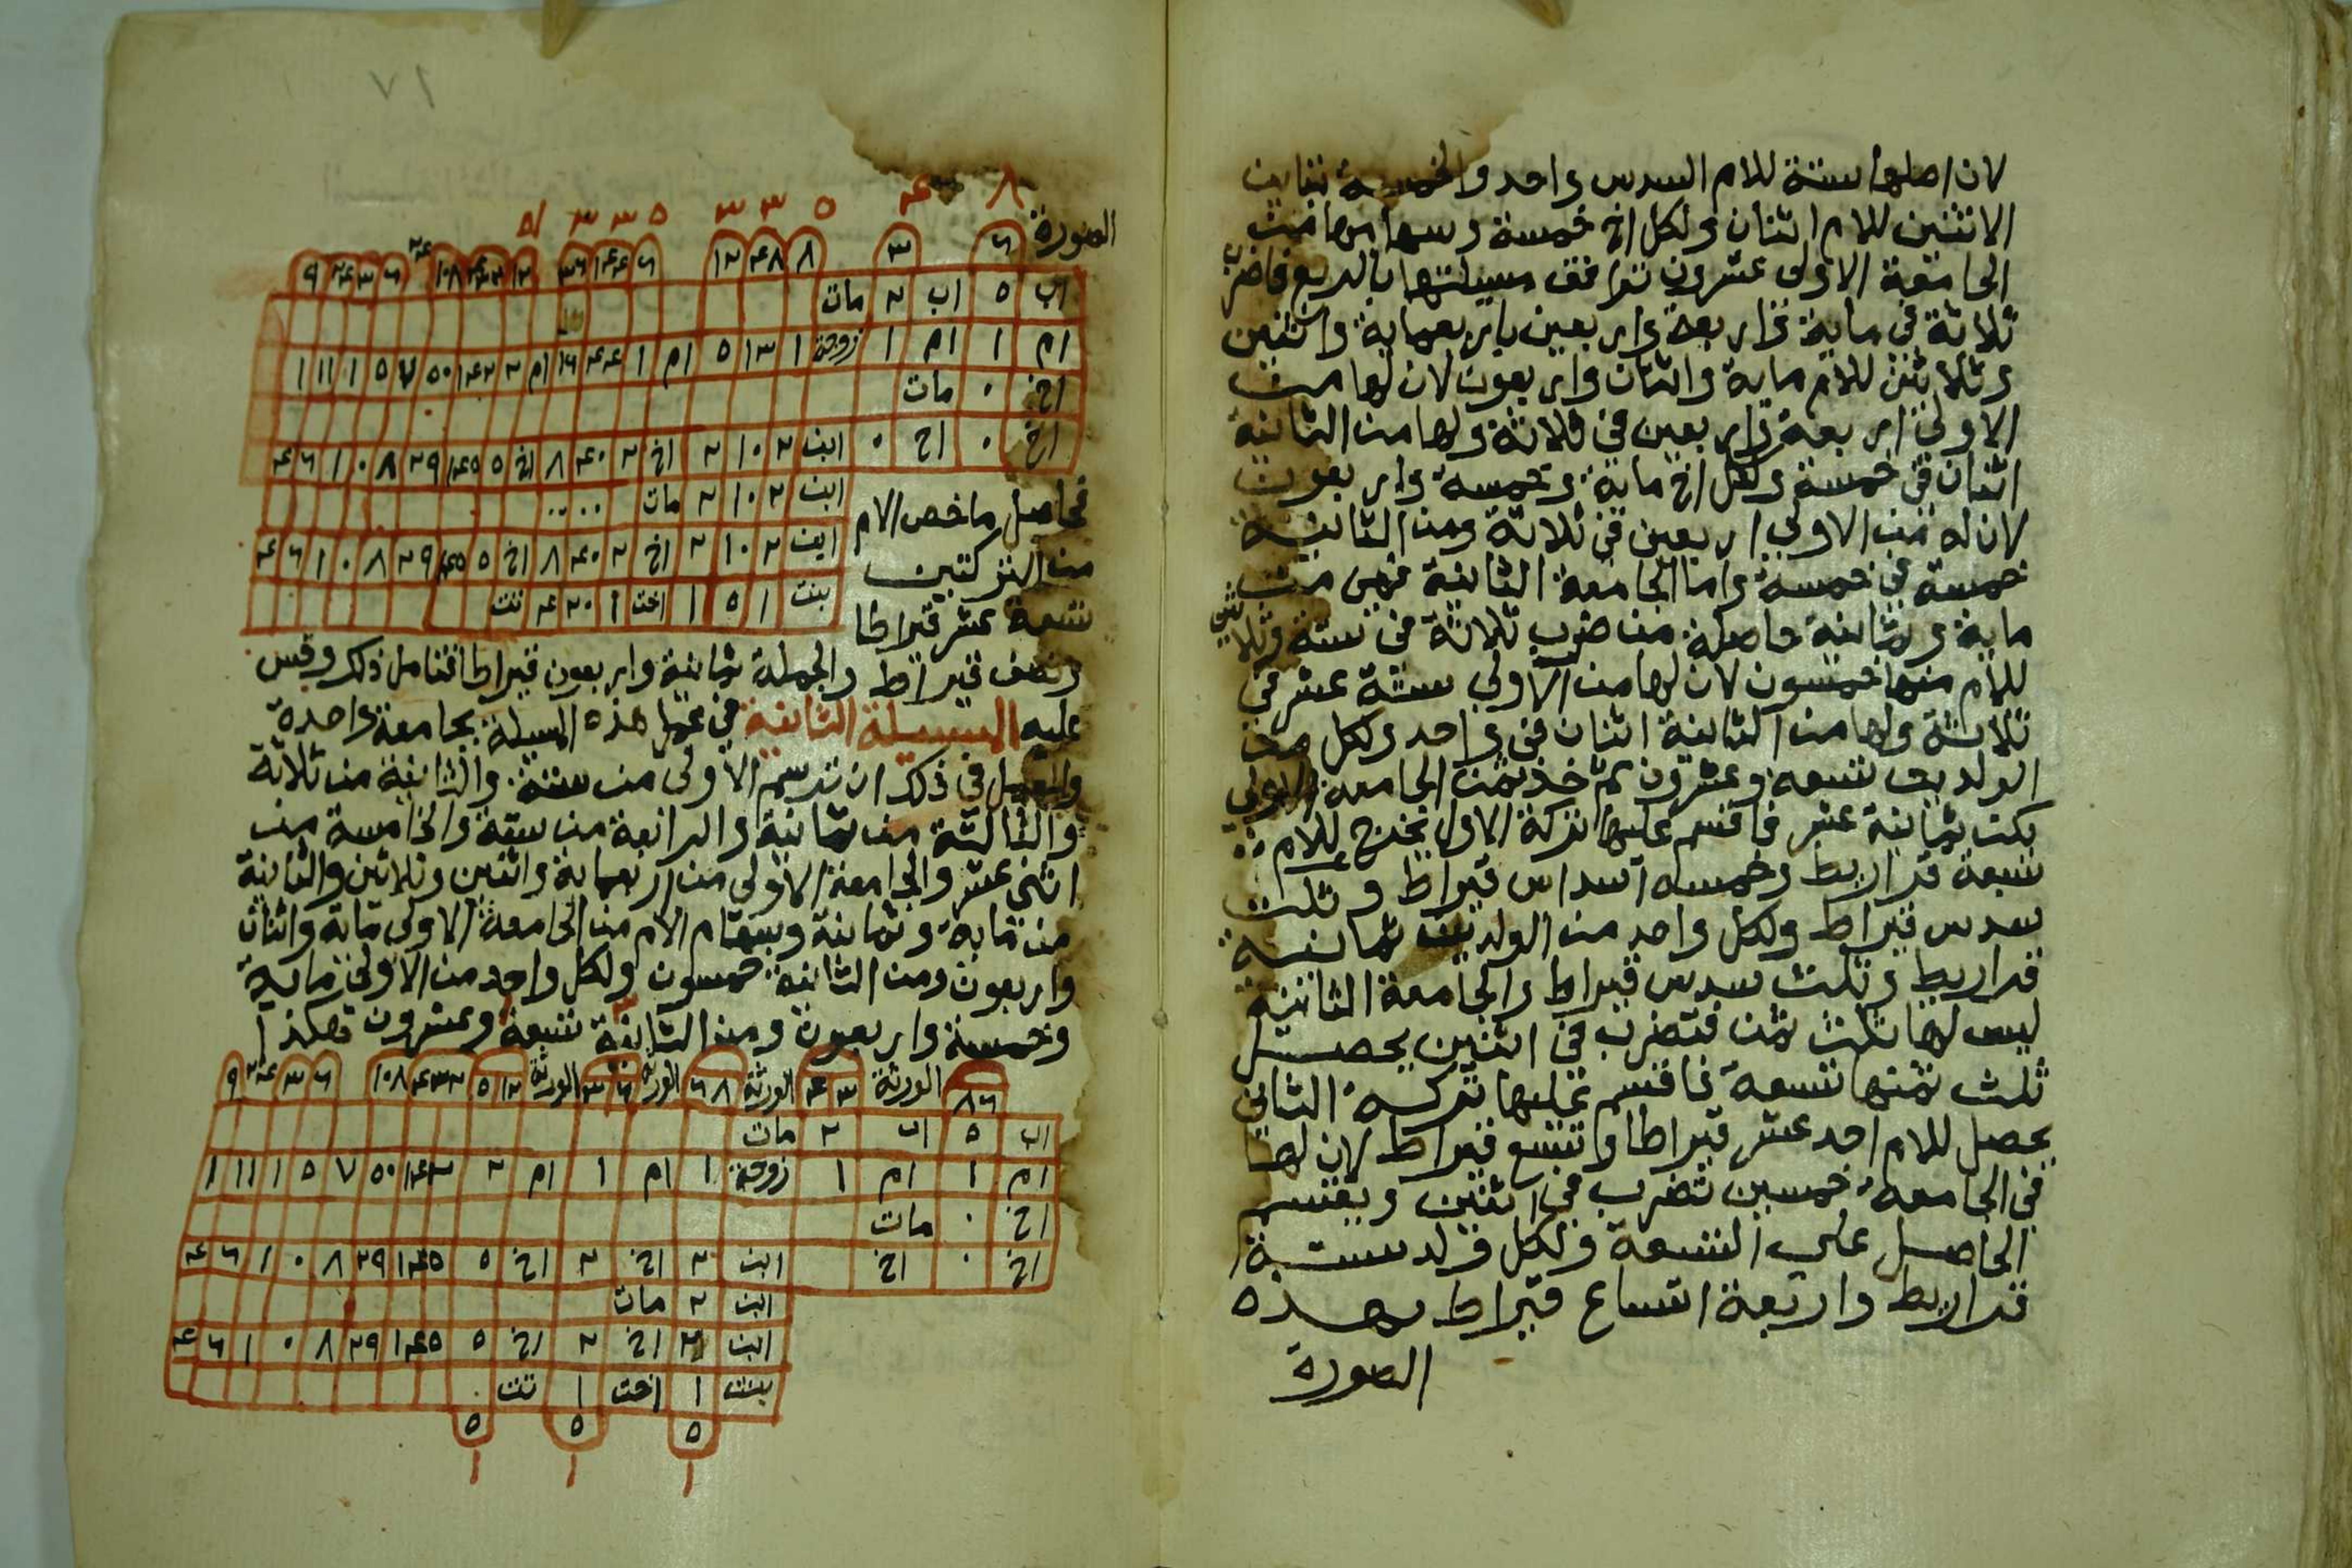 لان اصلها ستة للام السدس واحد والخمسة تباين
الاثنين للام اثنان ولكل اخ خمسة وسهامها من
الجامعة الاولى عشرون توافق مسيلتها بالربع فاضرب
ثلاثة في ماية واربعة واربعين باربعماية واثنين
وثلاثين للام ماية واثنان واربعون لان لها من
الاولى اربعة واربعين في ثلاثة ولها من الثانية
اثنان في خمسة ولكل اخ ماية وخمسة واربعون
لان له من الاولى اربعين في ثلاثة ومن الثانية
خمسة في خمسة واما الجامعة الثانية فهي من
ماية وثمانية حاصلة من ضرب ثلاثة في ستة وثلاثين
للام منها خمسون لان لها من الاولى ستة عشر في
ثلاثة ولها من الثانية اثنان في واحد ولكل من
الولدين تسعة وعشرون ثم خذ ثمن الجامعة الاولى
يكن ثمانية عشر فاقسم عليها تركة الاول يخرج للام
سبعة قراريط وخمسة اسداس قيراط وثلث
سدس قيراط ولكل واحد من الولدين ثمانية
قراريط وثلث سدس قيراط والجامعة الثانية
ليس لها ثلث ثمن فتضرب في اثنين يحصل
ثلث ثمنها تسعة فاقسم عليها تركة الثاني
يحصل للام احد عشر قيراطا وتسع قيراط لان لها
في الجامعة خمسين تضرب في اثنين ويقسم
الحاصل على التسعة ولكل ولد ستة
قراريط واربعة اتساع قيراط بهذه
الصورة
١٧
الصورة
اب ٥ اب ٢ مات
ام ١ ام ١ زوجة ١ ١٣ ٥ ام ١ ٤٤ ١٦ ام ٢ ١٤٢ ٥٠ ٧ ٥ ١ ١١ ١
اخ ٠ مات
اخ ٠ اخ ٠ ابن ٢ ١٠ ٢ اخ ٢ ٤٠ ٨ اخ ٥ ١٤٥ ٢٩ ٨ ٠ ١ ٦ ٤
ابن ٢ ١٠ ٢ مات
ابن ٢ ١٠ ٢ اخ ٢ ٤٠ ٨ اخ ٥ ١٤٥ ٢٩ ٨ ٠ ١ ٦ ٤
بنت ١ ٥ ١ اخت ١ ٢٠ ٤
فحاصل ما خص الام
من التركتين
تسعة عشر قيراطا
ونصف قيراط والجملة ثمانية واربعون قيراطا فتامل ذلك وقس
عليه المسيلة الثانية في عمل هذه المسيلة بجامعة واحدة
والعمل في ذلك ان ترسم الاولى من ستة والثانية من ثلاثة
والثالثة من ثمانية والرابعة من ستة والخامسة من
اثني عشر والجامعة الاولى من اربعماية واثنين وثلاثين والثانية
من ماية وثمانية وسهام الام من الجامعة الاولى ماية واثنان
واربعون ومن الثانية خمسون ولكل واحد من الاولى ماية
وخمسة واربعون ومن الثانية تسعة وعشرون هكذا
اب ٥ اب ٢ مات
ام ١ ام ١ زوجة ١ ام ١ ام ٢ ١٤٢ ٥٠ ٧ ٥ ١ ١١ ١
اخ ٠ مات
اخ ٠ اخ ابن ٢ اخ ٢ اخ ٥ ١٤٥ ٢٩ ٨ ٠ ١ ٦ ٤
ابن ٢ مات
ابن ٢ اخ ٢ اخ ٥ ١٤٥ ٢٩ ٨ ٠ ١ ٦ ٤
بنت ١ اخت ١
٥ ٥ ٥
١ ١ ١